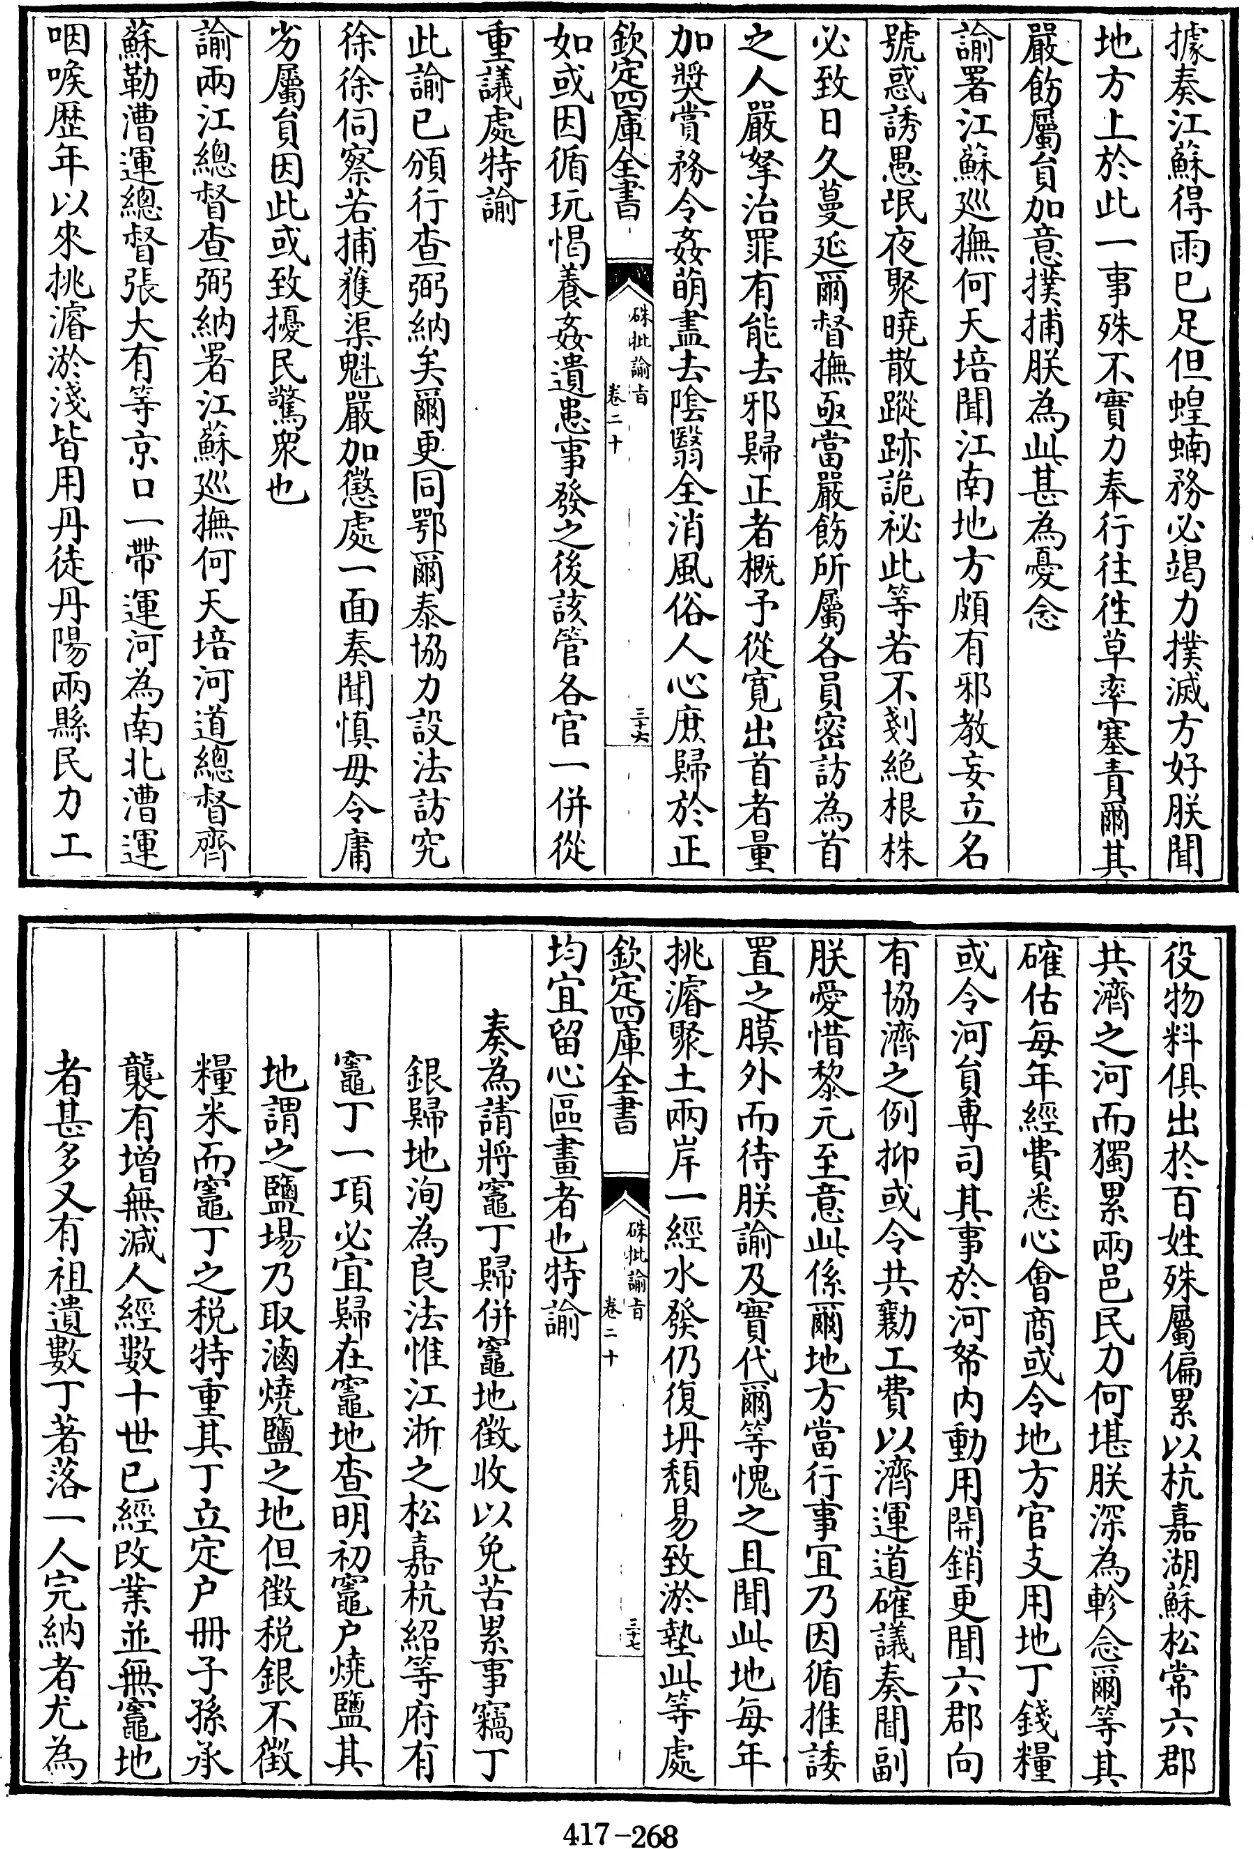 據奏江蘇得雨已足但蝗蝻務必竭力撲滅方好朕聞
地方上於此一事殊不實力奉行往往草率塞責爾其
嚴飭屬員加意撲捕朕為此甚為憂念
諭署江蘇巡撫何天培聞江南地方頗有邪教妄立名
號惑誘愚氓夜聚曉散蹤跡詭祕此等若不剗絕根株
必致日久蔓延爾督撫亟當嚴飭所屬各員密訪為首
之人嚴拏治罪有能去邪歸正者概予從寛出首者量
加奬賞務令姦萌盡去陰翳全消風俗人心庶歸於正
欽定四庫全書
硃批諭旨
卷二十
三十六
如或因循玩愒養姦遺患事發之後該管各官一併從
重議處特諭
此諭已頒行查弼納矣爾更同鄂爾泰協力設法訪究
徐徐伺察若捕獲渠魁嚴加懲處一面奏聞慎毋令庸
劣屬員因此或致擾民驚衆也
諭兩江總督查弼納署江蘇巡撫何天培河道總督齊
蘇勒漕運總督張大有等京口一帶運河為南北漕運
咽喉歷年以來挑濬淤淺皆用丹徒丹陽兩縣民力工
役物料俱出於百姓殊屬偏累以杭嘉湖蘇松常六郡
共濟之河而獨累兩邑民力何堪朕深為軫念爾等其
確估每年經費悉心會商或令地方官支用地丁錢糧
或令河員專司其事於河帑内動用開銷更聞六郡向
有協濟之例抑或令共勷工費以濟運道確議奏聞副
朕愛惜黎元至意此係爾地方當行事宜乃因循推諉
置之膜外而待朕諭及實代爾等愧之且聞此地每年
挑濬聚土兩岸一經水發仍復坍頽易致淤墊此等處
欽定四庫全書
硃批諭旨
卷二十
三十七
均宜留心區畫者也特諭
奏為請將竈丁歸併竈地徵收以免苦累事竊丁
銀歸地洵為良法惟江浙之松嘉杭紹等府有
竈丁一項必宜歸在竈地查明初竈户燒鹽其
地謂之鹽場乃取滷燒鹽之地但徵税銀不徵
糧米而竈丁之税特重其丁立定户冊子孫承
襲有增無減人經數十世已經改業並無竈地
者甚多又有祖遺數丁著落一人完納者尤為
417-268